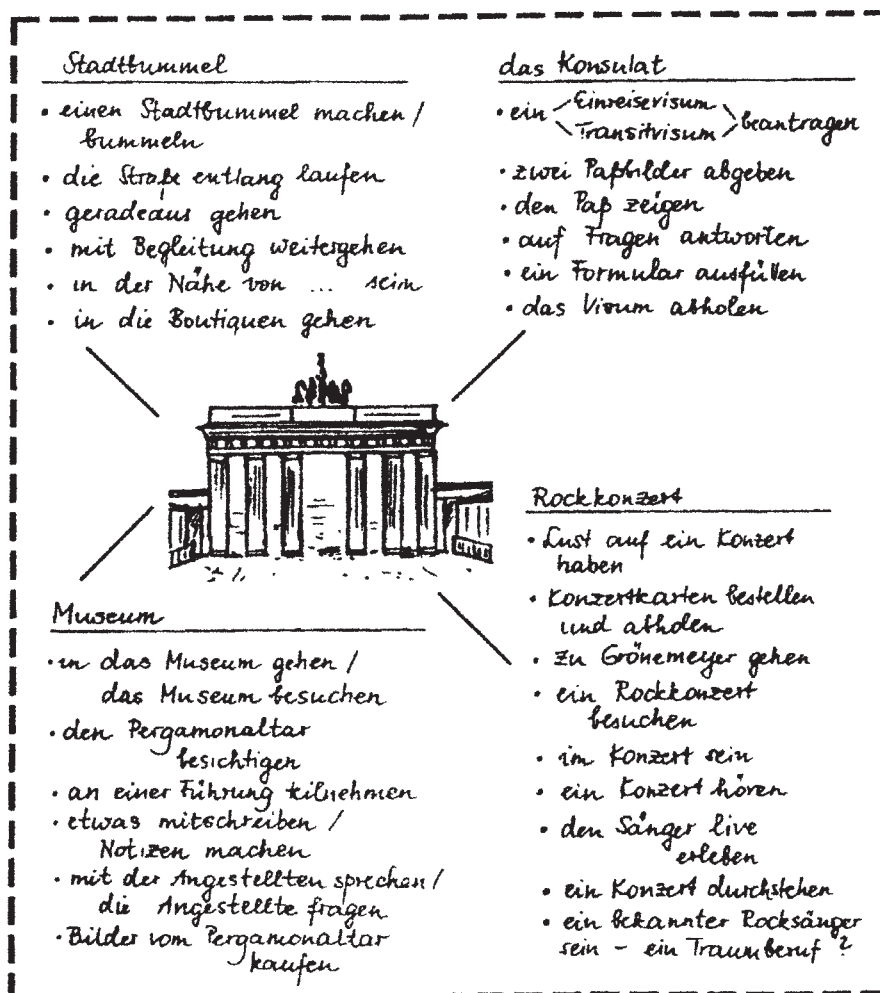 Stadtbummel
• einen Stadtbummel machen /
bummeln
• die Straße entlang laufen
• geradeaus gehen
• mit Begleitung weitergehen
• in der Nähe von ... sein
• in die Boutiquen gehen
das Konsulat
• ein Einreisevisum
Transitvisum beantragen
• zwei Paßbilder abgeben
• den Paß zeigen
• auf Fragen antworten
• ein Formular ausfüllen
• das Visum abholen
Museum
• in das Museum gehen /
das Museum besuchen
• den Pergamonaltar
besichtigen
• an einer Führung teilnehmen
• etwas mitschreiben /
Notizen machen
• mit der Angestellten sprechen /
die Angestellte fragen
• Bilder vom Pergamonaltar
kaufen
Rockkonzert
• Lust auf ein Konzert
haben
• Konzertkarten bestellen
und abholen
• zu Grönemeyer gehen
• ein Rockkonzert
besuchen
• im Konzert sein
• ein Konzert hören
• den Sänger live
erleben
• ein Konzert durchstehen
• ein bekannter Rocksänger
sein – ein Traumberuf?